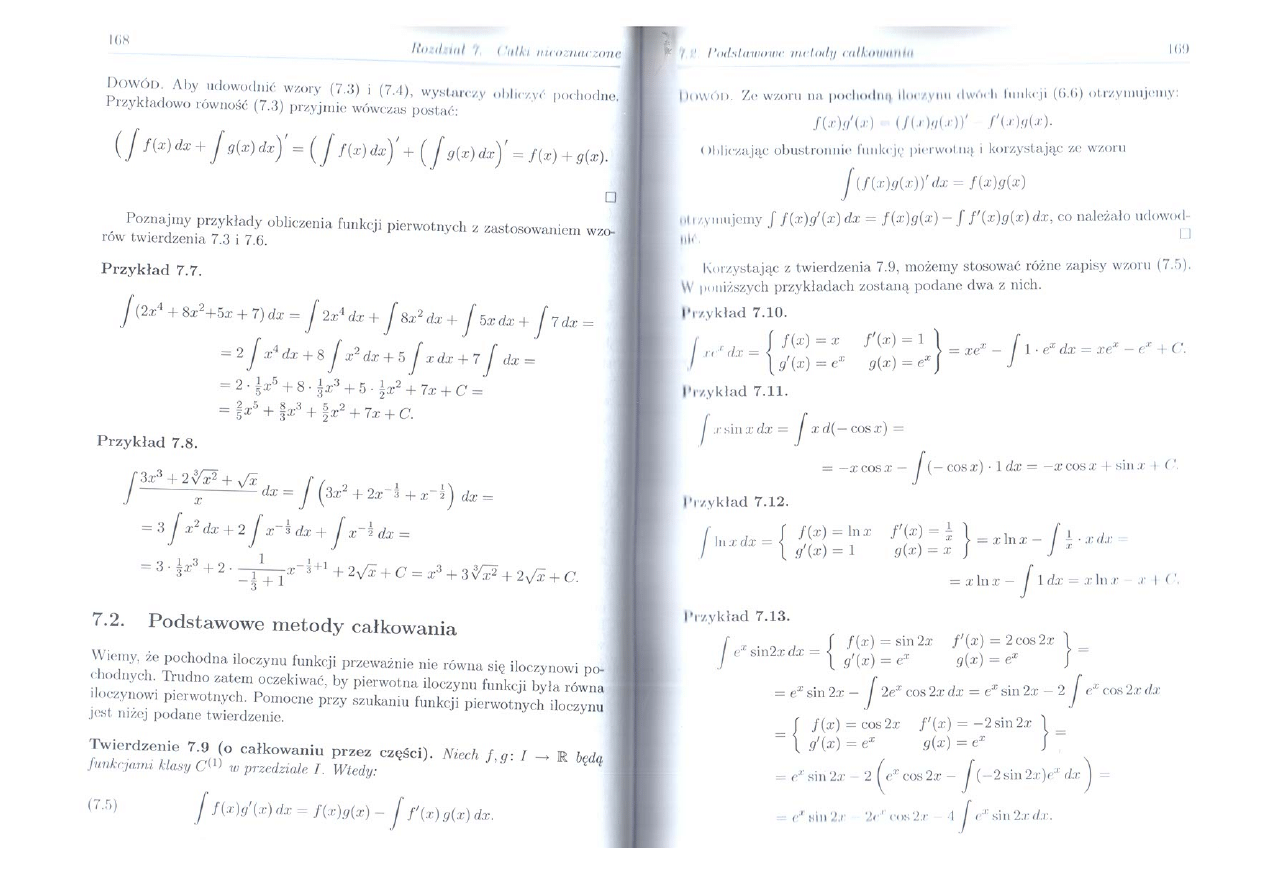 168
Rozdział 7. Całki nieoznaczone
DOWÓD. Aby udowodnić wzory (7.3) i (7.4), wystarczy obliczyć pochodne.
Przykładowo równość (7.3) przyjmie wówczas postać:
(∫ f(x) dx + ∫ g(x) dx)′ = (∫ f(x) dx)′ + (∫ g(x) dx)′ = f(x) + g(x).
□
Poznajmy przykłady obliczenia funkcji pierwotnych z zastosowaniem wzo-
rów twierdzenia 7.3 i 7.6.
Przykład 7.7.
∫(2x⁴ + 8x²+5x + 7) dx = ∫ 2x⁴ dx + ∫ 8x² dx + ∫ 5x dx + ∫ 7 dx =
= 2 ∫ x⁴ dx + 8 ∫ x² dx + 5 ∫ x dx + 7 ∫ dx =
= 2 · 1/5 x⁵ + 8 · 1/3 x³ + 5 · 1/2 x² + 7x + C =
= 2/5 x⁵ + 8/3 x³ + 5/2 x² + 7x + C.
Przykład 7.8.
∫ (3x³ + 2∛x² + √x)/x dx = ∫ (3x² + 2x^(-1/3) + x^(-1/2)) dx =
= 3 ∫ x² dx + 2 ∫ x^(-1/3) dx + ∫ x^(-1/2) dx =
= 3 · 1/3 x³ + 2 · 1/(-1/3 + 1) x^(-1/3+1) + 2√x + C = x³ + 3∛x² + 2√x + C.
7.2. Podstawowe metody całkowania
Wiemy, że pochodna iloczynu funkcji przeważnie nie równa się iloczynowi po-
chodnych. Trudno zatem oczekiwać, by pierwotna iloczynu funkcji była równa
iloczynowi pierwotnych. Pomocne przy szukaniu funkcji pierwotnych iloczynu
jest niżej podane twierdzenie.
Twierdzenie 7.9 (o całkowaniu przez części). Niech f, g: I → ℝ będą
funkcjami klasy C⁽¹⁾ w przedziale I. Wtedy:
(7.5) ∫ f(x)g′(x) dx = f(x)g(x) − ∫ f′(x) g(x) dx.
7.2. Podstawowe metody całkowania
169
DOWÓD. Ze wzoru na pochodną iloczynu dwóch funkcji (6.6) otrzymujemy:
f(x)g′(x) = (f(x)g(x))′ − f′(x)g(x).
Obliczając obustronnie funkcję pierwotną i korzystając ze wzoru
∫(f(x)g(x))′ dx = f(x)g(x)
otrzymujemy ∫ f(x)g′(x) dx = f(x)g(x) − ∫ f′(x)g(x) dx, co należało udowod-
nić. □
Korzystając z twierdzenia 7.9, możemy stosować różne zapisy wzoru (7.5).
W poniższych przykładach zostaną podane dwa z nich.
Przykład 7.10.
∫ xeˣ dx = { f(x) = x f′(x) = 1
g′(x) = eˣ g(x) = eˣ } = xeˣ − ∫ 1 · eˣ dx = xeˣ − eˣ + C.
Przykład 7.11.
∫ x sin x dx = ∫ x d(− cos x) =
= −x cos x − ∫ (− cos x) · 1 dx = −x cos x + sin x + C.
Przykład 7.12.
∫ ln x dx = { f(x) = ln x f′(x) = 1/x
g′(x) = 1 g(x) = x } = x ln x − ∫ 1/x · x dx =
= x ln x − ∫ 1 dx = x ln x − x + C.
Przykład 7.13.
∫ eˣ sin2x dx = { f(x) = sin 2x f′(x) = 2 cos 2x
g′(x) = eˣ g(x) = eˣ } =
= eˣ sin 2x − ∫ 2eˣ cos 2x dx = eˣ sin 2x − 2 ∫ eˣ cos 2x dx
= { f(x) = cos 2x f′(x) = −2 sin 2x
g′(x) = eˣ g(x) = eˣ } =
= eˣ sin 2x − 2 (eˣ cos 2x − ∫(−2 sin 2x)eˣ dx) =
= eˣ sin 2x − 2eˣ cos 2x − 4 ∫ eˣ sin 2x dx.